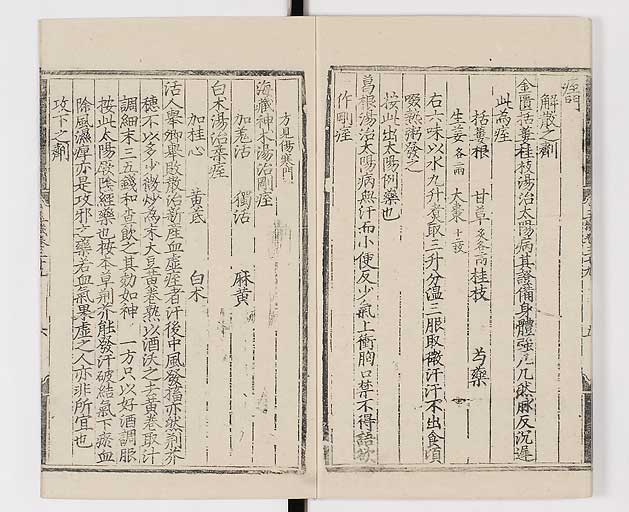 痓門
解散之劑
金匱栝蔞桂枝湯治太陽病其證備身體強几几然脉反沉遲
此為痓
栝蔞根 甘草 炙各二兩 桂枝 芍藥
生姜 各二兩 大棗 十二枚
右六味以水九升煮取三升分溫三服取微汗汗不出食頃
啜熱粥發之
按此出太陽例藥也
葛根湯治太陽病無汗而小便反少氣上衝胸口禁不得語欲
作剛痓
方見傷寒門
海藏神术湯治剛痓
加羌活 獨活 麻黃
白术湯治柔痓
加桂心 黃芪 白术
活人舉卿舉敗散治新產血虛痓者汗後中風發搐亦然荊芥
穗不以多少微炒為末大豆黃卷熟以酒沃之去黃卷取汁
調細末三五錢和滓飲之其効如神 一方只以好酒調服
按此太陽厥陰經藥也按本草荊芥能發汗破結氣下瘀血
除風濕痺亦是攻邪之藥若血氣果虛之人亦非所宜也
攻下之劑